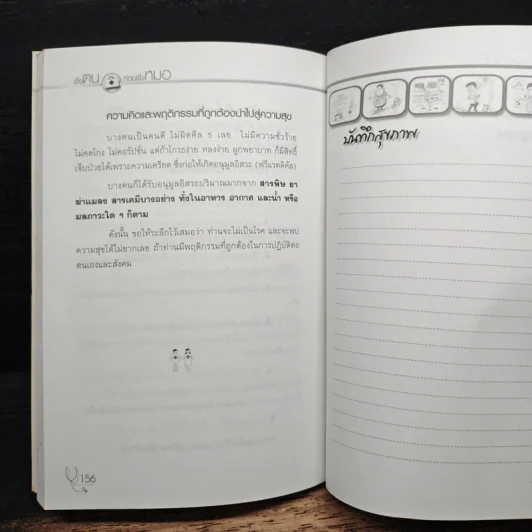 พึ่งตน ก่อนพึ่งหมอ
ความคิดและพฤติกรรมที่ถูกต้องนำไปสู่ความสุข
บางคนเป็นคนดี ไม่ผิดศีล 5 เลย ไม่มีความชั่วร้าย
ไม่คดโกง ไม่คอรัปชั่น แต่ถ้าโกรธง่าย หลงง่าย ผูกพยาบาท ก็มีสิทธิ์
เจ็บป่วยได้เพราะความเครียด ซึ่งก่อให้เกิดอนุมูลอิสระ (ฟรีแรดิคัล)
บางคนก็ได้รับอนุมูลอิสระปริมาณมากจาก สารพิษ ยา
ฆ่าแมลง สารเคมีบางอย่าง ทั้งในอาหาร อากาศ และน้ำ หรือ
มลภาวะใด ๆ ก็ตาม
ดังนั้น ขอให้ระลึกไว้เสมอว่า ท่านจะไม่เป็นโรค และจะพบ
ความสุขได้ไม่ยากเลย ถ้าท่านมีพฤติกรรมที่ถูกต้องในการปฏิบัติต่อ
ตนเองและสังคม
156
บันทึกสุขภาพ